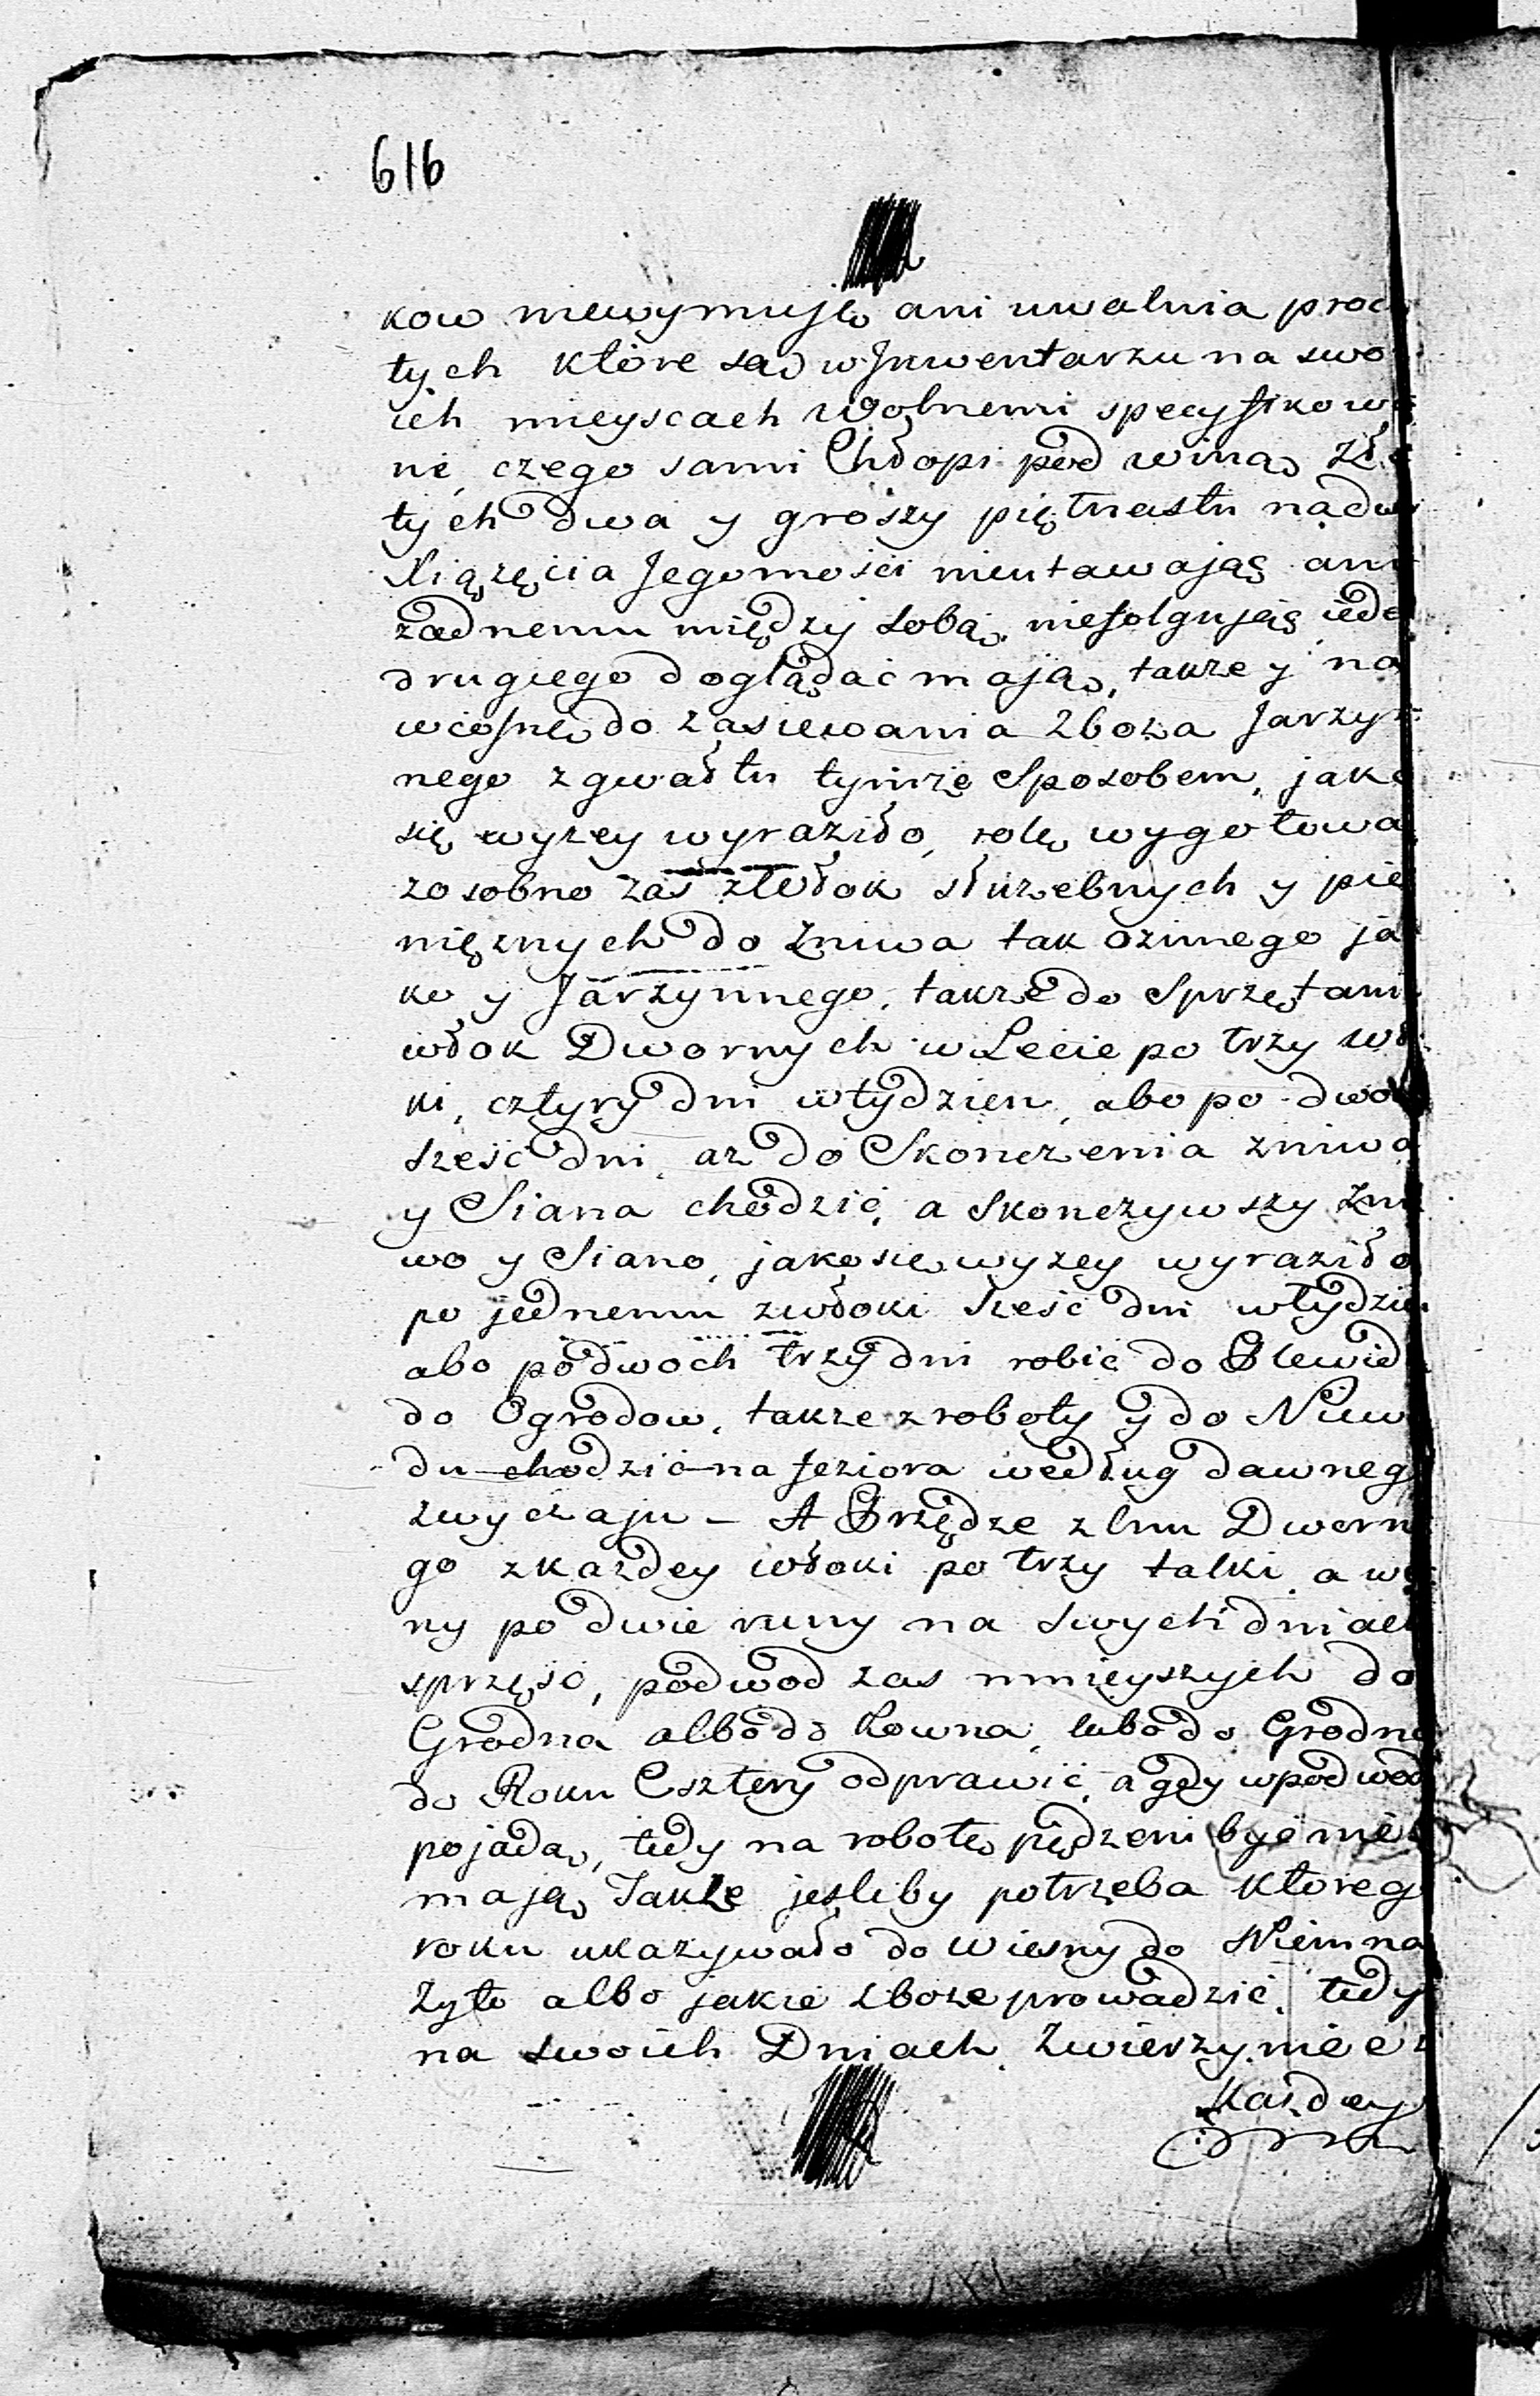 616
kow niewymuję ani uwalnia procz
tych które są w Inwentarzu na swo
ich mieyscach Wolnemi specyfikowa
ni, czego sami Chłopi pod winą Zło
tych dwa y groszy piętnastu na dwor
Xiążęcia Jegomości nieutawając ani
żadnemu między sobą niefolgując ieden
drugiego doglądać mają, także y na
wiosnę do zasiewania Zboża Jarzyn
nego zgwałtu tymże Sposobem, jako
się wyżey wyraziło, rolę wygotować
zosobno zaś zWłok słuzebnych y pie
nięznych do Zniwa tak ozimego ja
ko y Jarzynnego, także do Sprzętania
włok Dwornych w Lecie po trzy Wło
ki, cztyry dni wtydzien, abo po dwoch
sześć dni, az do Skonczenia zniwa
y Siana chodzić, a Skonczywszy Zni
wo y Siano, jako się wyzey wyraziło
po jednemu zwłoki Sześć dni wtydzien
abo podwoch trzy dni robić do Plewid
do Ogrodow, także zroboty y do Niewo
du chodzić na Jeziora według dawnego
zwyczaju - A Przędze zlnu Dworne
go zkazdey włoki po trzy talki, a weł
ny po dwie runy na swych dniach
sprząść, podwod zas mnieyszych do
Grodna albo do Kowna, lubo do Grodna
do Roku Cztery odprawić, a gdy wpodwody
pojadą, tedy na robotę pędzeni być nie
mają, Także jesliby potrzeba ktorego
roku ukazywało do Wiesny do Niemna
Zyto albo jakie zboze prowadzić, tedy
na swoich Dniach, Zwierzyniec z
Kazdey